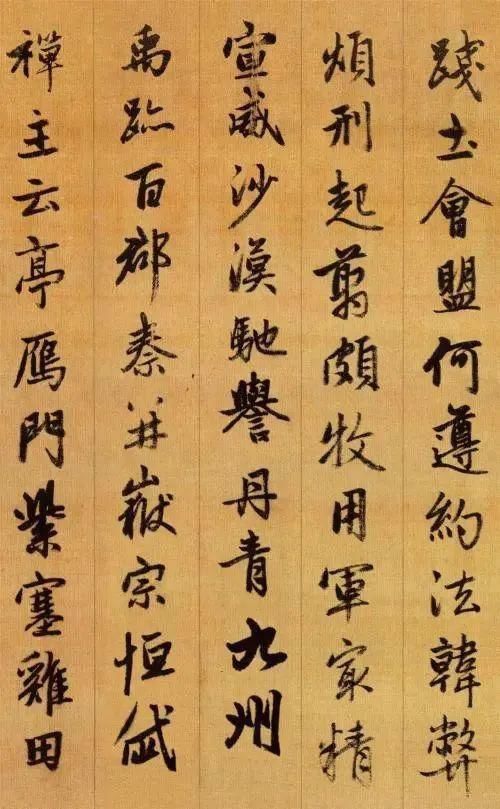 踐土會盟何遵約法韓弊
煩刑起翦頗牧用軍冣精
宣威沙漠馳譽丹青九州
禹跡百郡秦并嶽宗恒岱
禪主云亭雁門紫塞雞田